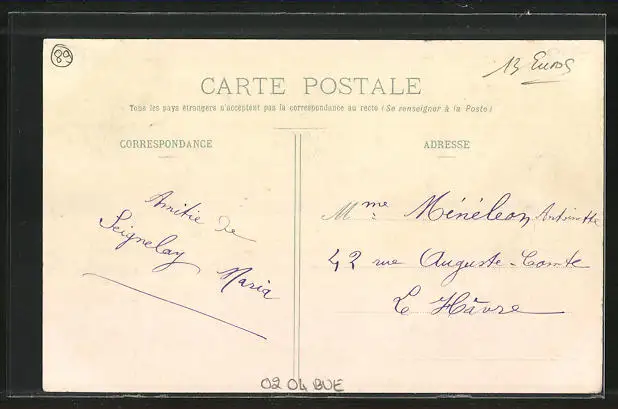 89
13 Euros
CARTE POSTALE
Tous les pays étrangers n'acceptent pas la correspondance au recto (Se renseigner à la Poste)
CORRESPONDANCE
Amitié de
Seignelay
Maria
ADRESSE
Mme Ménéleon Antoinette
42 rue Auguste-Comte
Le Hâvre
02 04 BUE